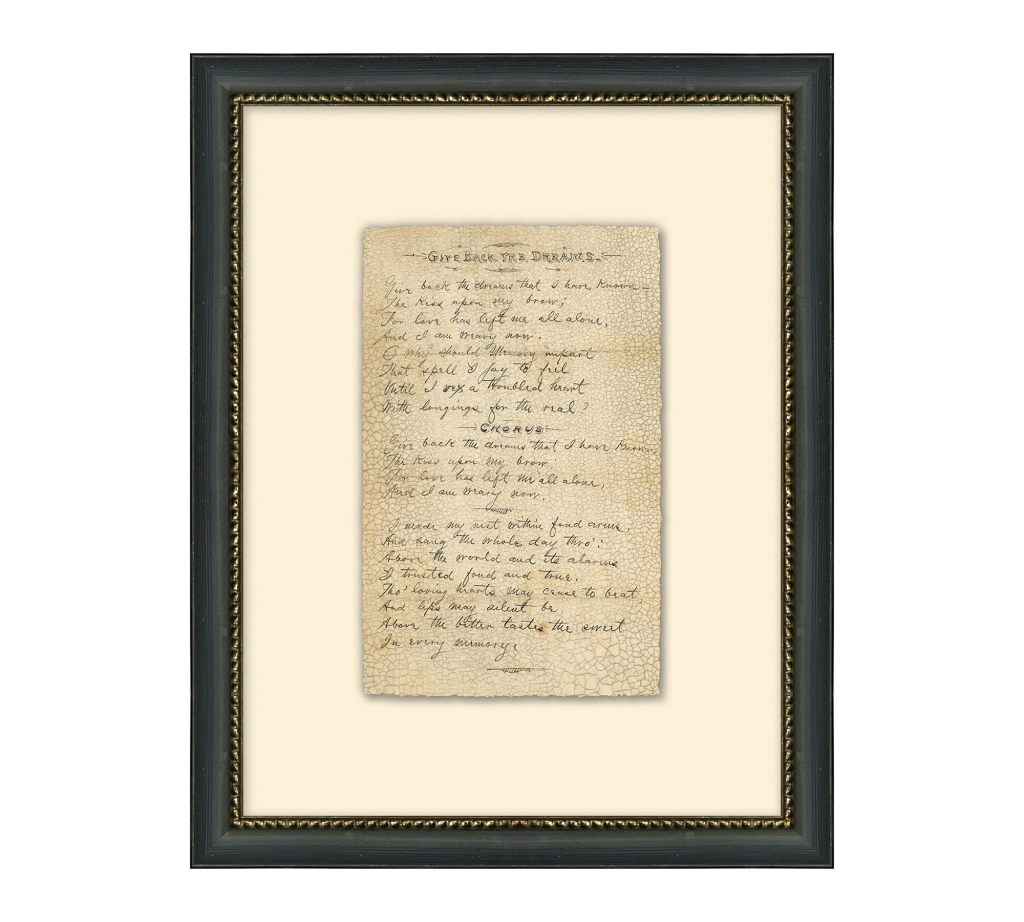 GIVE BACK THE DREAMS.
Give back the dreams that I have known —
The kiss upon my brow;
For love has left me all alone,
And I am weary now.
O why should Memory impart
That spell I fay to feel
Until I wex a troubled heart
With longings for the real?
CHORUS
Give back the dreams that I have known
The kiss upon my brow,
For love has left me all alone,
And I am weary now.
I made my nest within fond arms,
And sang the whole day thro';
Above the world and its alarms
I trusted fond and true.
Tho' loving hearts may cease to beat,
And lips may silent be,
Above the bitter tastes the sweet
In every memory.